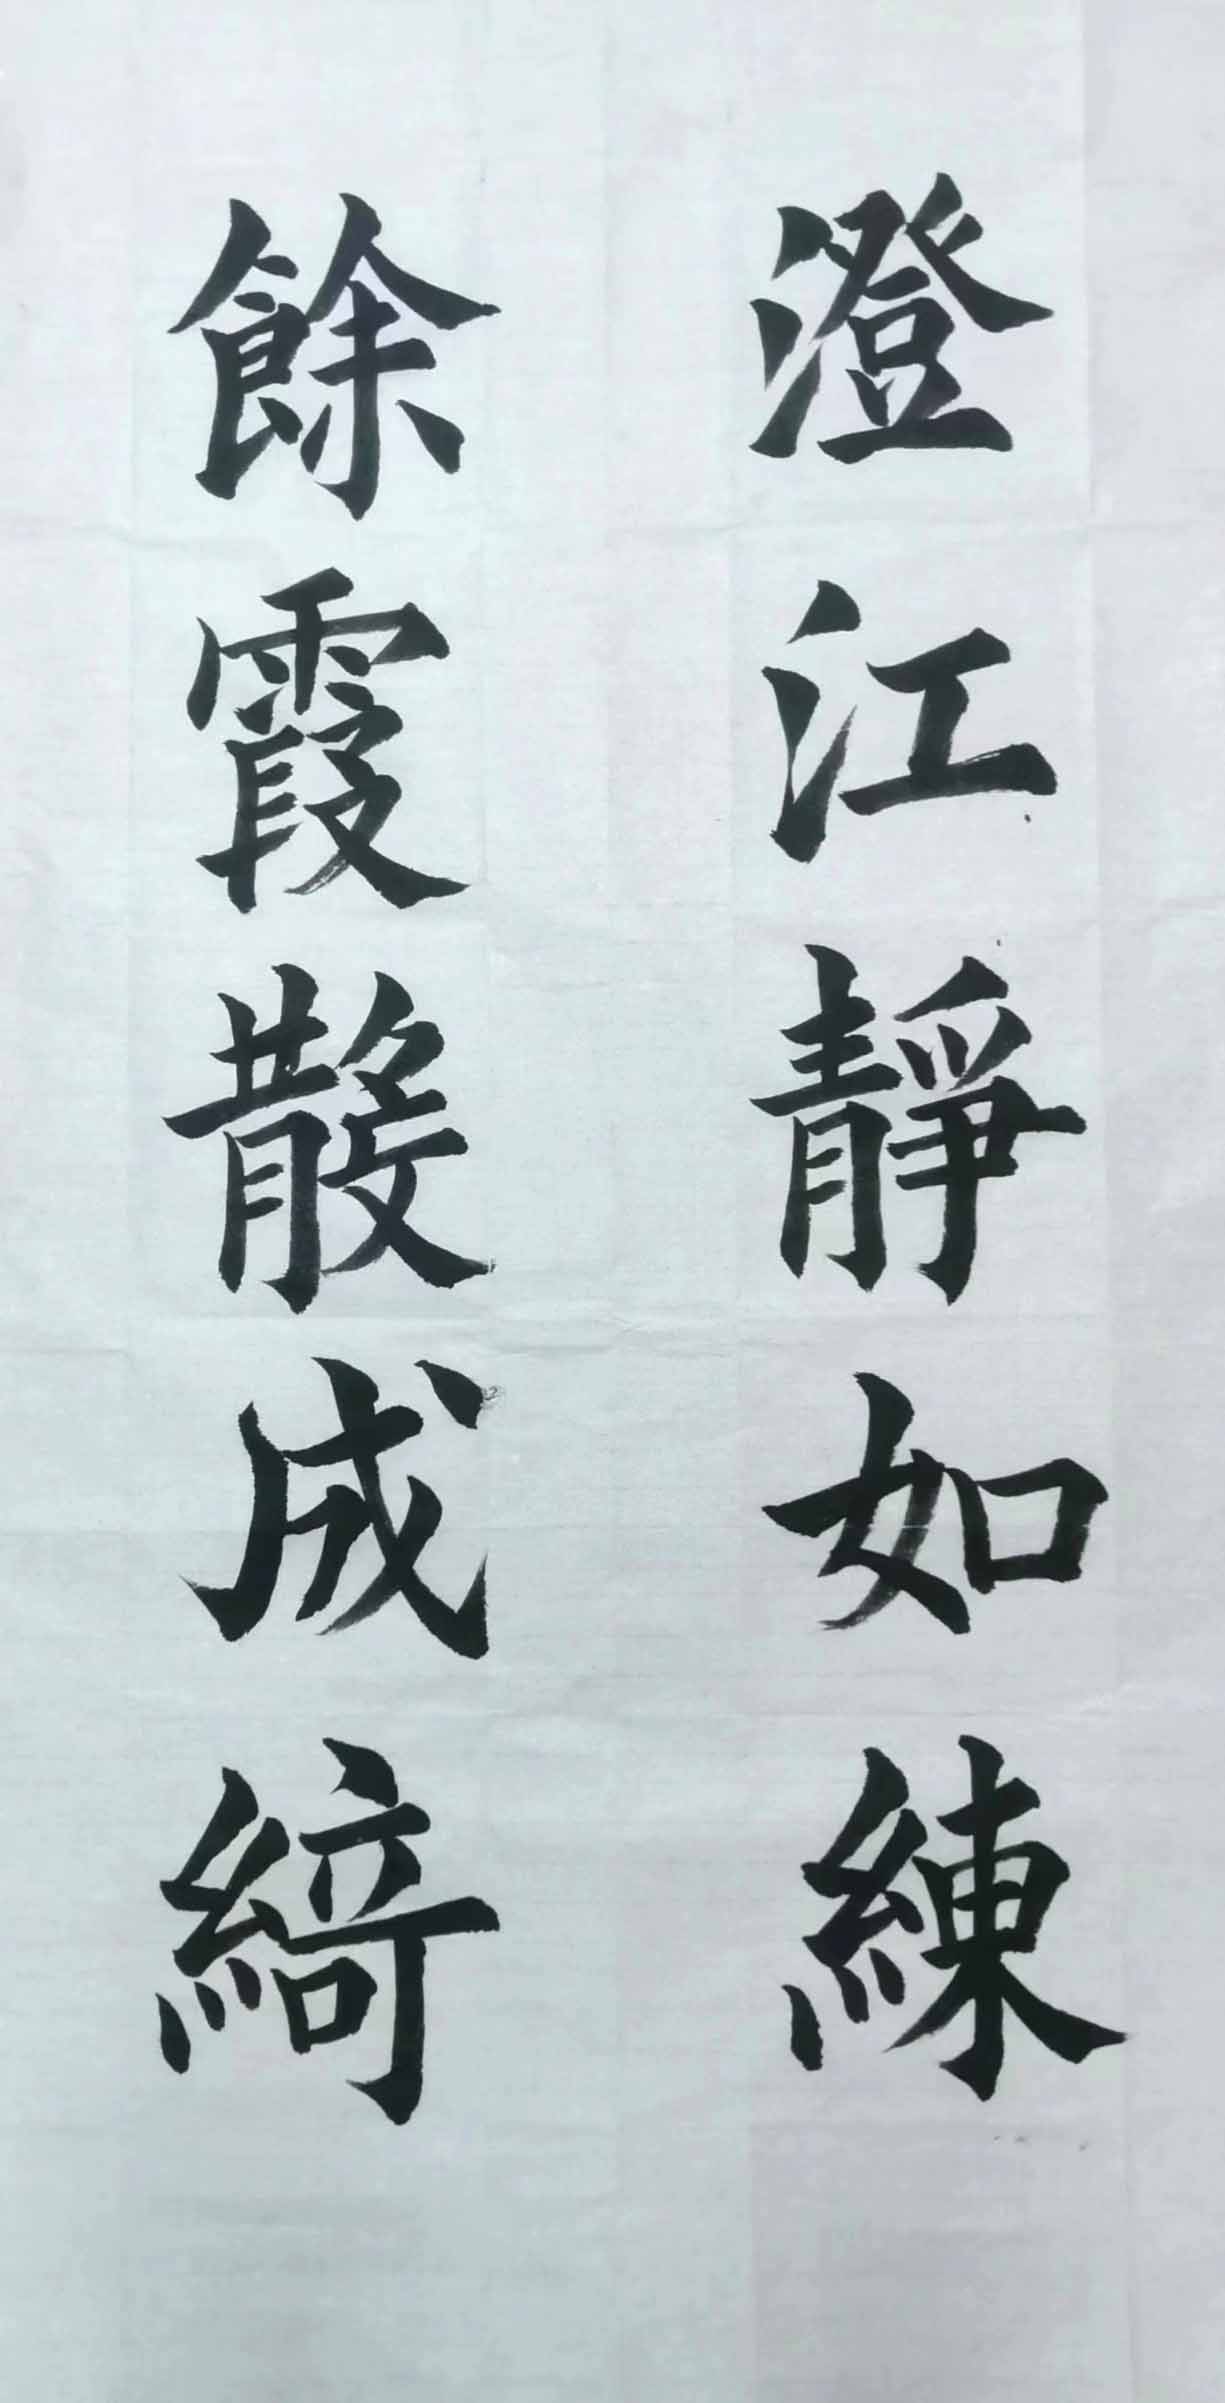 澄江靜如練
餘霞散成綺